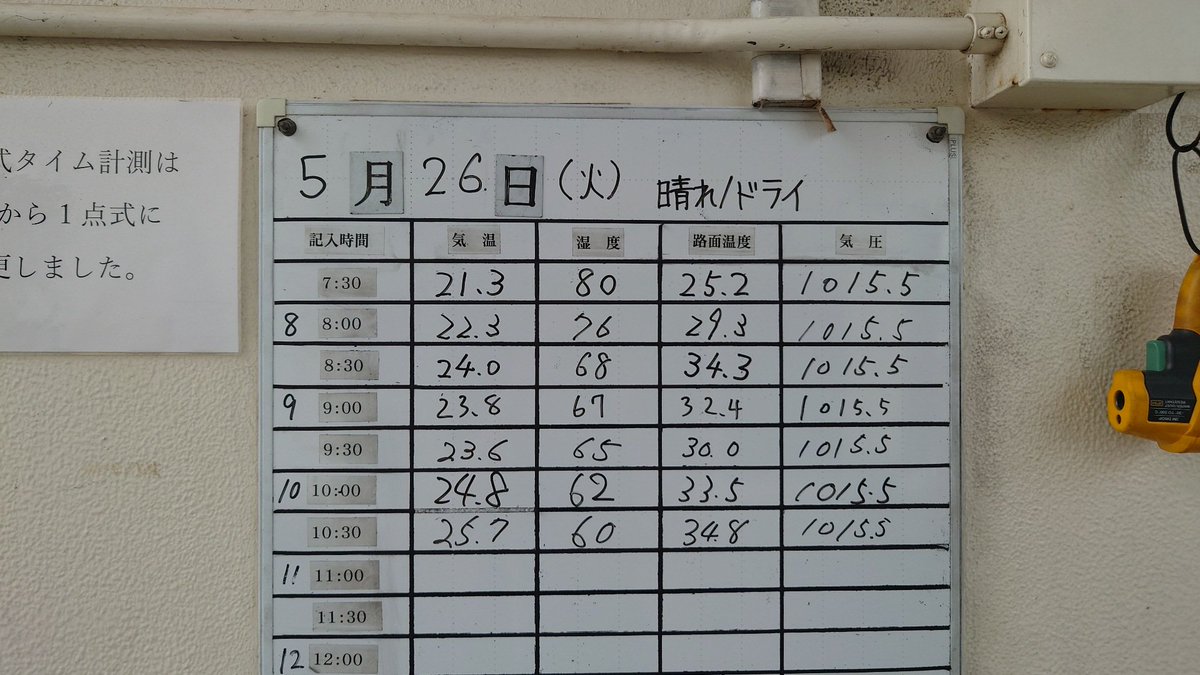 式タイム計測は
から１点式に
更しました。
PLUS
5月26日(火) 晴れ/ドライ
記入時間 気温 湿度 路面温度 気圧
7:30 21.3 80 25.2 1015.5
8 8:00 22.3 76 29.3 1015.5
8:30 24.0 68 34.3 1015.5
9 9:00 23.8 67 32.4 1015.5
9:30 23.6 65 30.0 1015.5
10 10:00 24.8 62 33.5 1015.5
10:30 25.7 60 34.8 1015.5
11 11:00
11:30
12 12:00